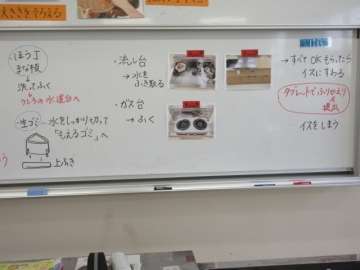 大きさをそろえる
・ほう丁
まな板
→洗ってふく
→うしろの水道台へ
・生ゴミ…水をしっかり切って
「もえるゴミ」へ
上ぶき
・流し台
→水を
ふき取る
・ガス台
→ふく
→すべてOKもらったら
イスにすわる
タブレットでふりかえり
提出
イスをしまう